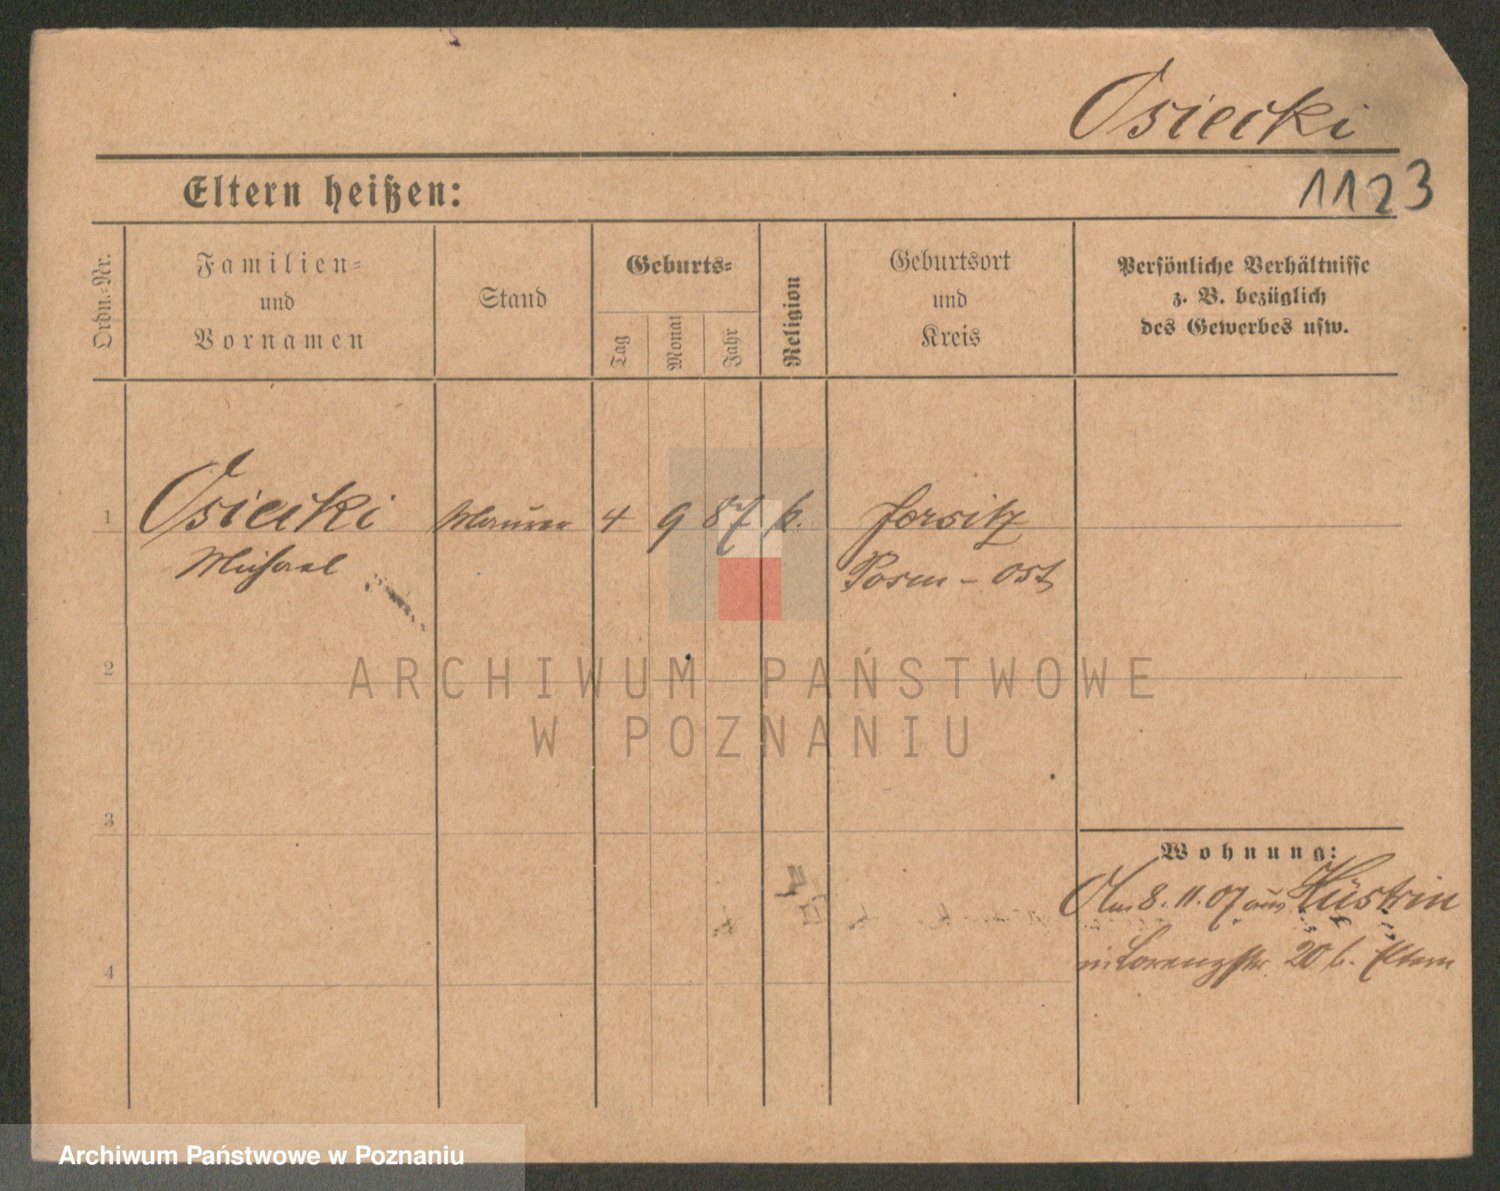 Osiecki
1123
Eltern heißen:
Ordn.-Nr.
Familien-
und
Vornamen
Stand
Geburts-
Tag
Monat
Jahr
Religion
Geburtsort
und
Kreis
Persönliche Verhältnisse
z. B. bezüglich
des Gewerbes usw.
1 Osiecki Maurer 4 9 87 k. Jersitz
Michael Posen - Ost
2
ARCHIWUM PAŃSTWOWE
W POZNANIU
3
Wohnung:
8.11.07 aus Küstrin
4
20 b. Eltern
Archiwum Państwowe w Poznaniu